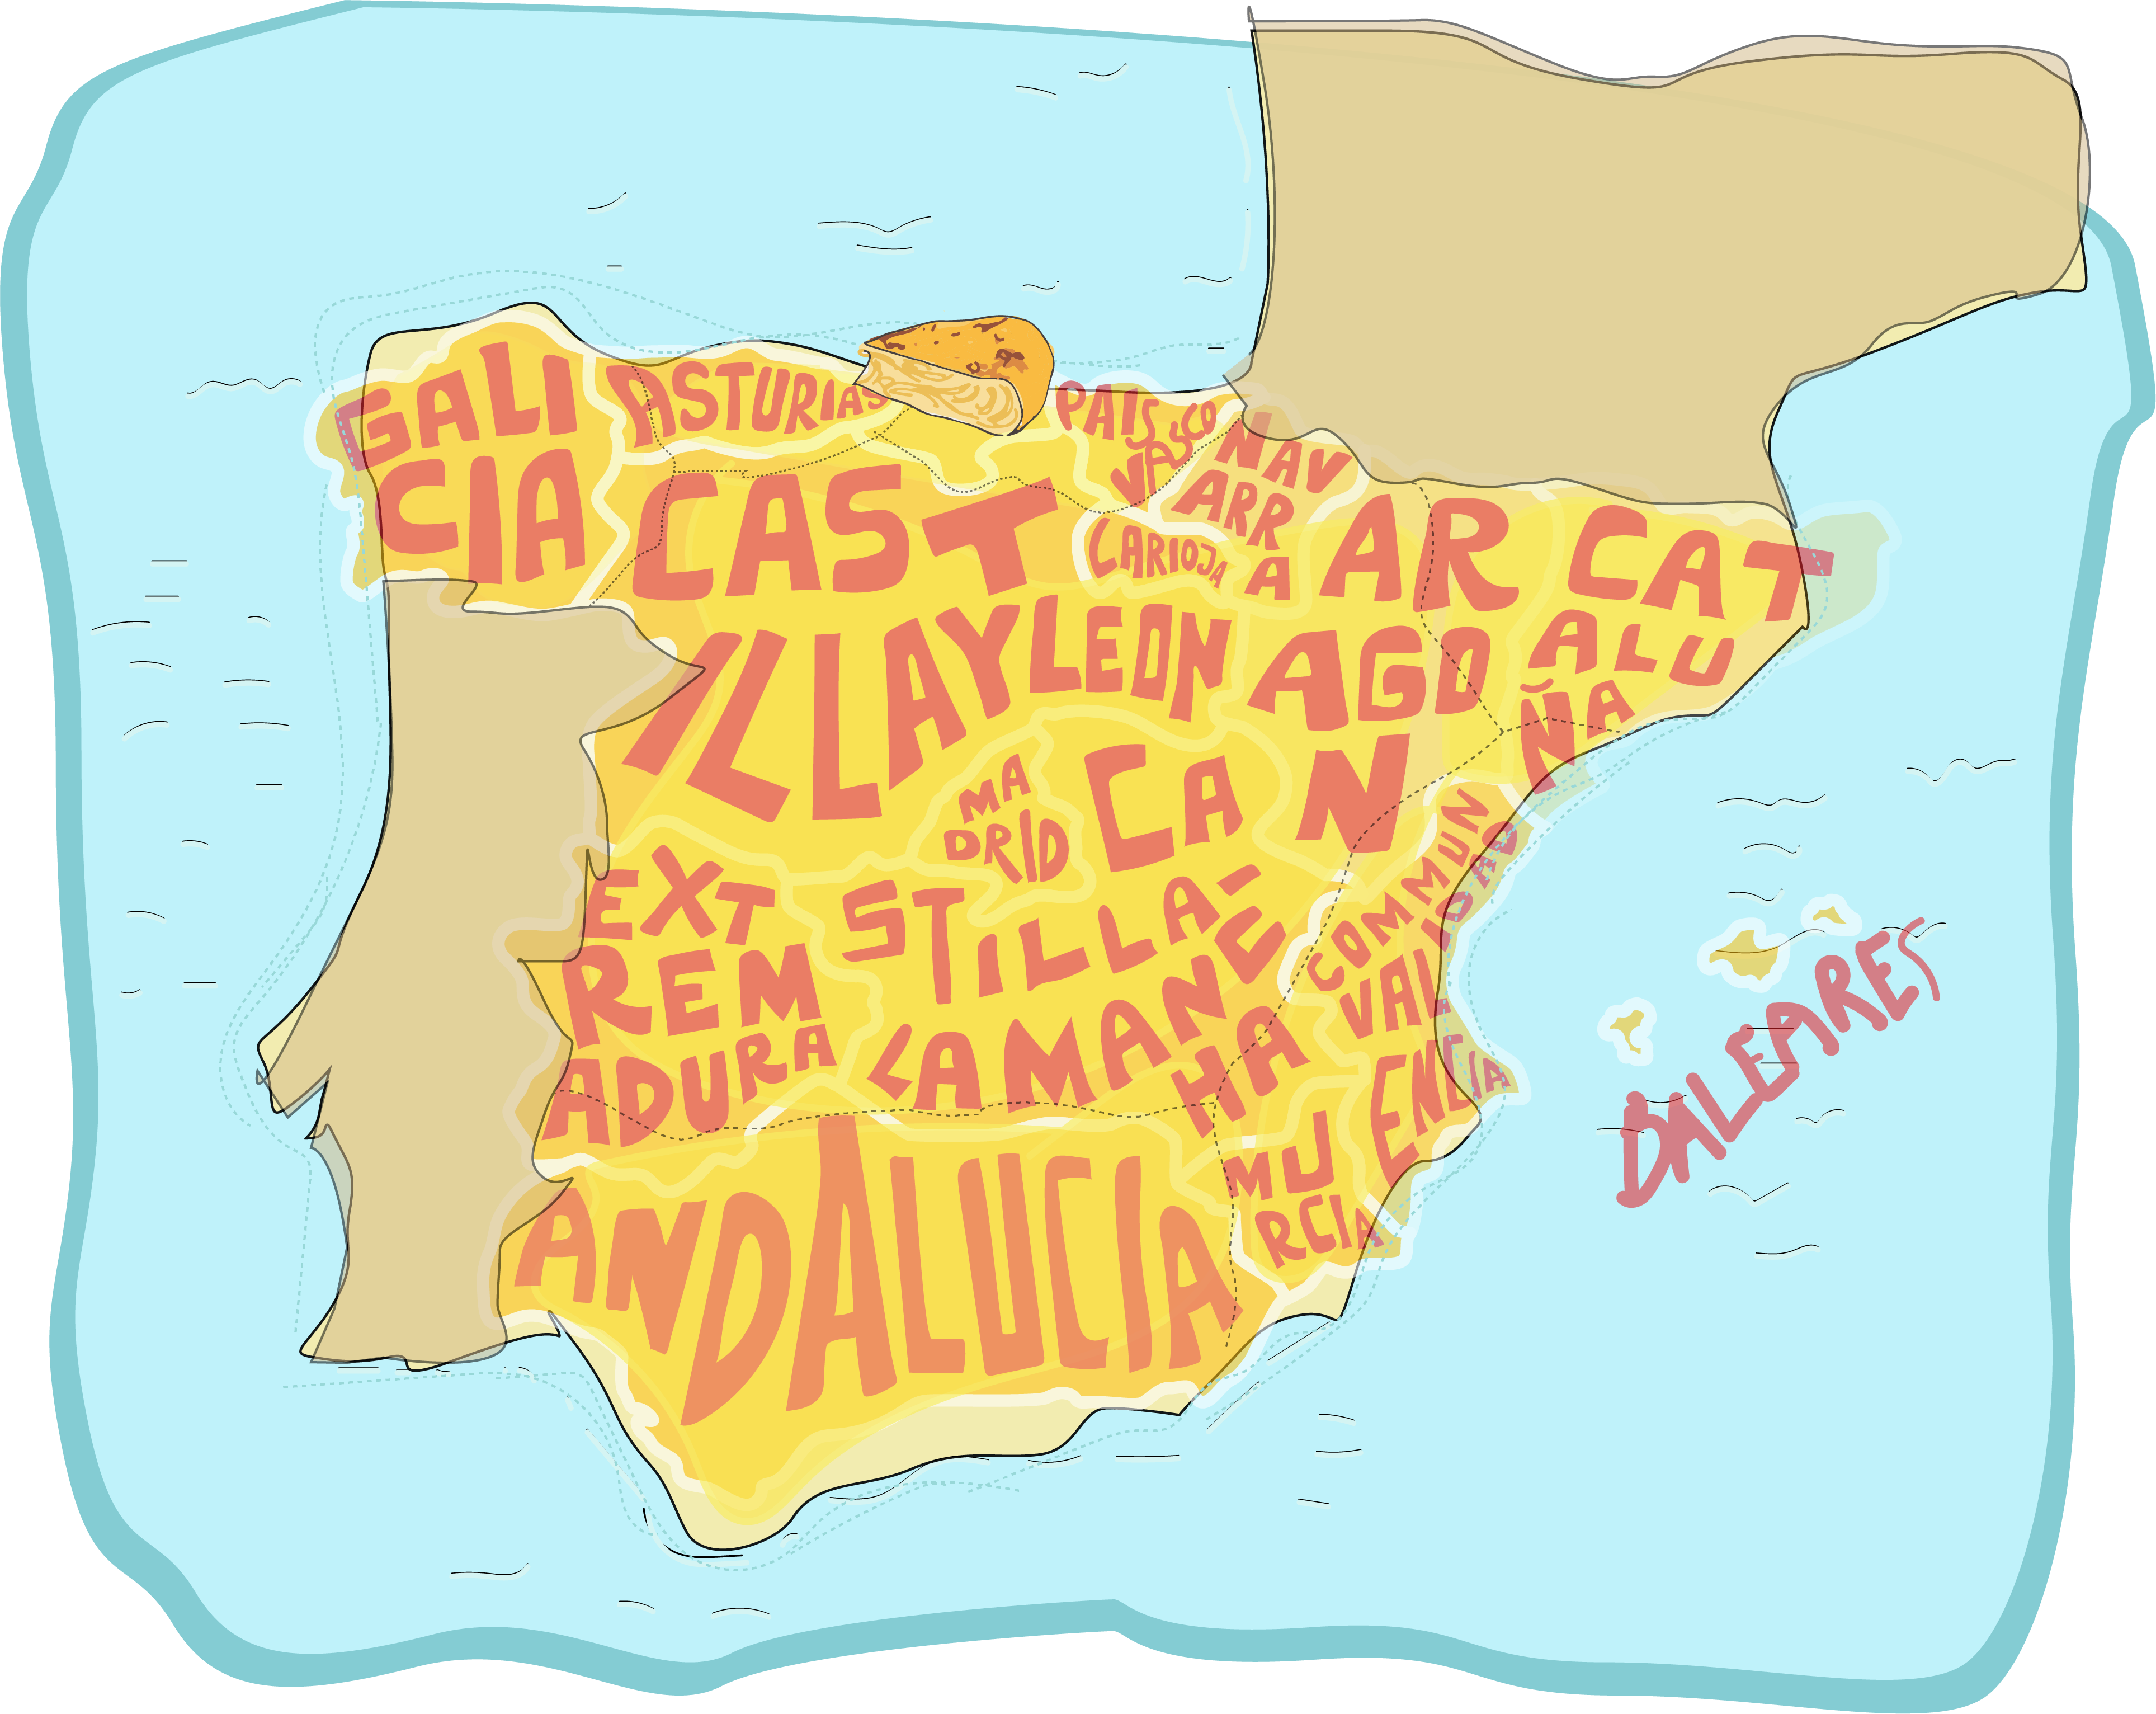 GALI
CIA
ASTURIAS
PAIS
VASCO
NAV
ARR
A
CAST
ILLA Y LEON
LA RIOJA
AR
AGO
N
CAT
ALU
ÑA
MA
DRID
CA
STILLA
LA MANCHA
EXT
REM
ADURA
COMMUNIDAD
VAL
ENCIA
MU
RCIA
ANDALUCIA